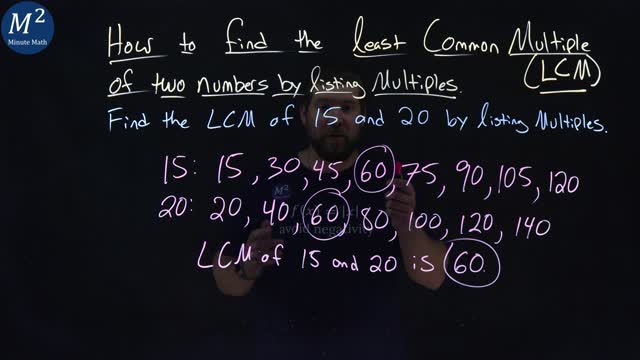 M²
Minute Math
How to find the least Common Multiple
(LCM)
of two numbers by listing Multiples.
Find the LCM of 15 and 20 by listing Multiples.
15: 15, 30, 45, 60, 75, 90, 105, 120
M²
20: 20, 40, 60, 80, 100, 120, 140
avoid negativity
LCM of 15 and 20 is 60.